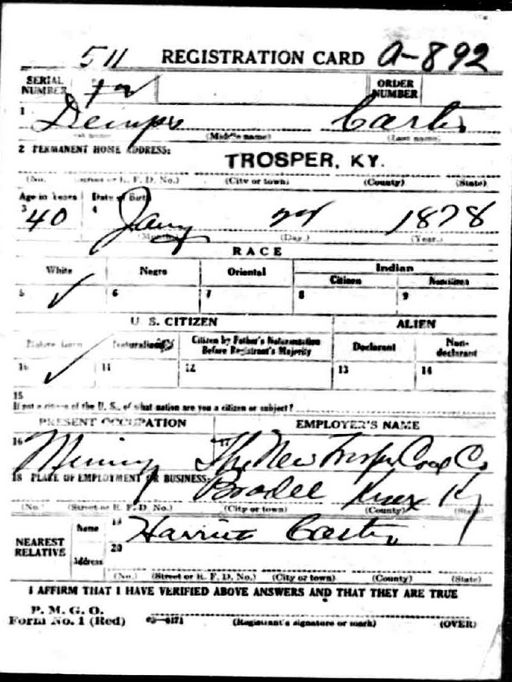 511 REGISTRATION CARD A-892
SERIAL NUMBER ORDER NUMBER
1 Carter
(Middle name) (Last name)
2 PERMANENT HOME ADDRESS: TROSPER, KY.
(No.) (Street or R. F. D. No.) (City or town) (County) (State)
Age in Years Date of Birth
3 40 4 Jany 1878
(Month.) (Day.) (Year.)
RACE
White Negro Oriental Indian
Citizen Noncitizen
5 ✓ 6 7 8 9
U. S. CITIZEN ALIEN
Native Born Naturalized Citizen by Father's Naturalization Before Registrant's Majority Declarant Non-declarant
10 ✓ 11 12 13 14
15
If not a citizen of the U. S., of what nation are you a citizen or subject?
PRESENT OCCUPATION EMPLOYER'S NAME
16 Mining 17 The New Trosper Coal Co
18 PLACE OF EMPLOYMENT OR BUSINESS: Knox Ky
(No.) (Street or R. F. D. No.) (City or town) (County) (State)
NEAREST RELATIVE Name 19 Harriet Carter
Address 20
(No.) (Street or R. F. D. No.) (City or town) (County) (State)
I AFFIRM THAT I HAVE VERIFIED ABOVE ANSWERS AND THAT THEY ARE TRUE
P. M. G. O.
Form No. 1 (Red) (Registrant's signature or mark) (OVER)